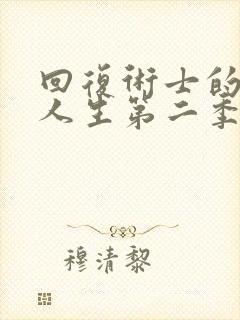 回復術士的
人生第二季
穆清黎